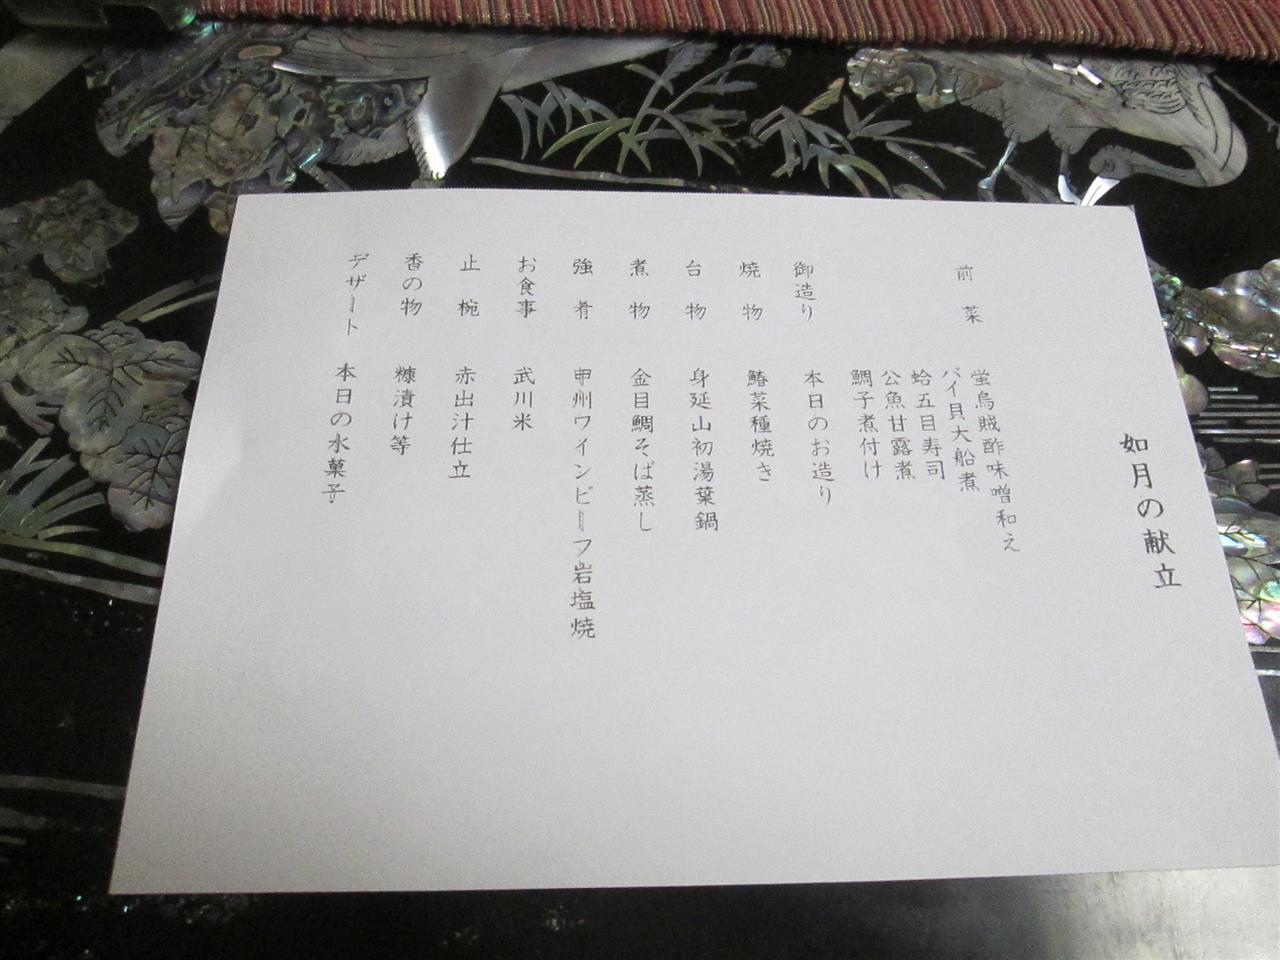 如月の献立
前菜 蛍烏賊酢味噌和え
バイ貝大船煮
蛤五目寿司
公魚甘露煮
鯛子煮付け
御造り 本日のお造り
焼物 鰆菜種焼き
台物 身延山初湯葉鍋
煮物 金目鯛そば蒸し
強肴 甲州ワインビーフ岩塩焼
お食事 武川米
止椀 赤出汁仕立
香の物 糠漬け等
デザート 本日の水菓子